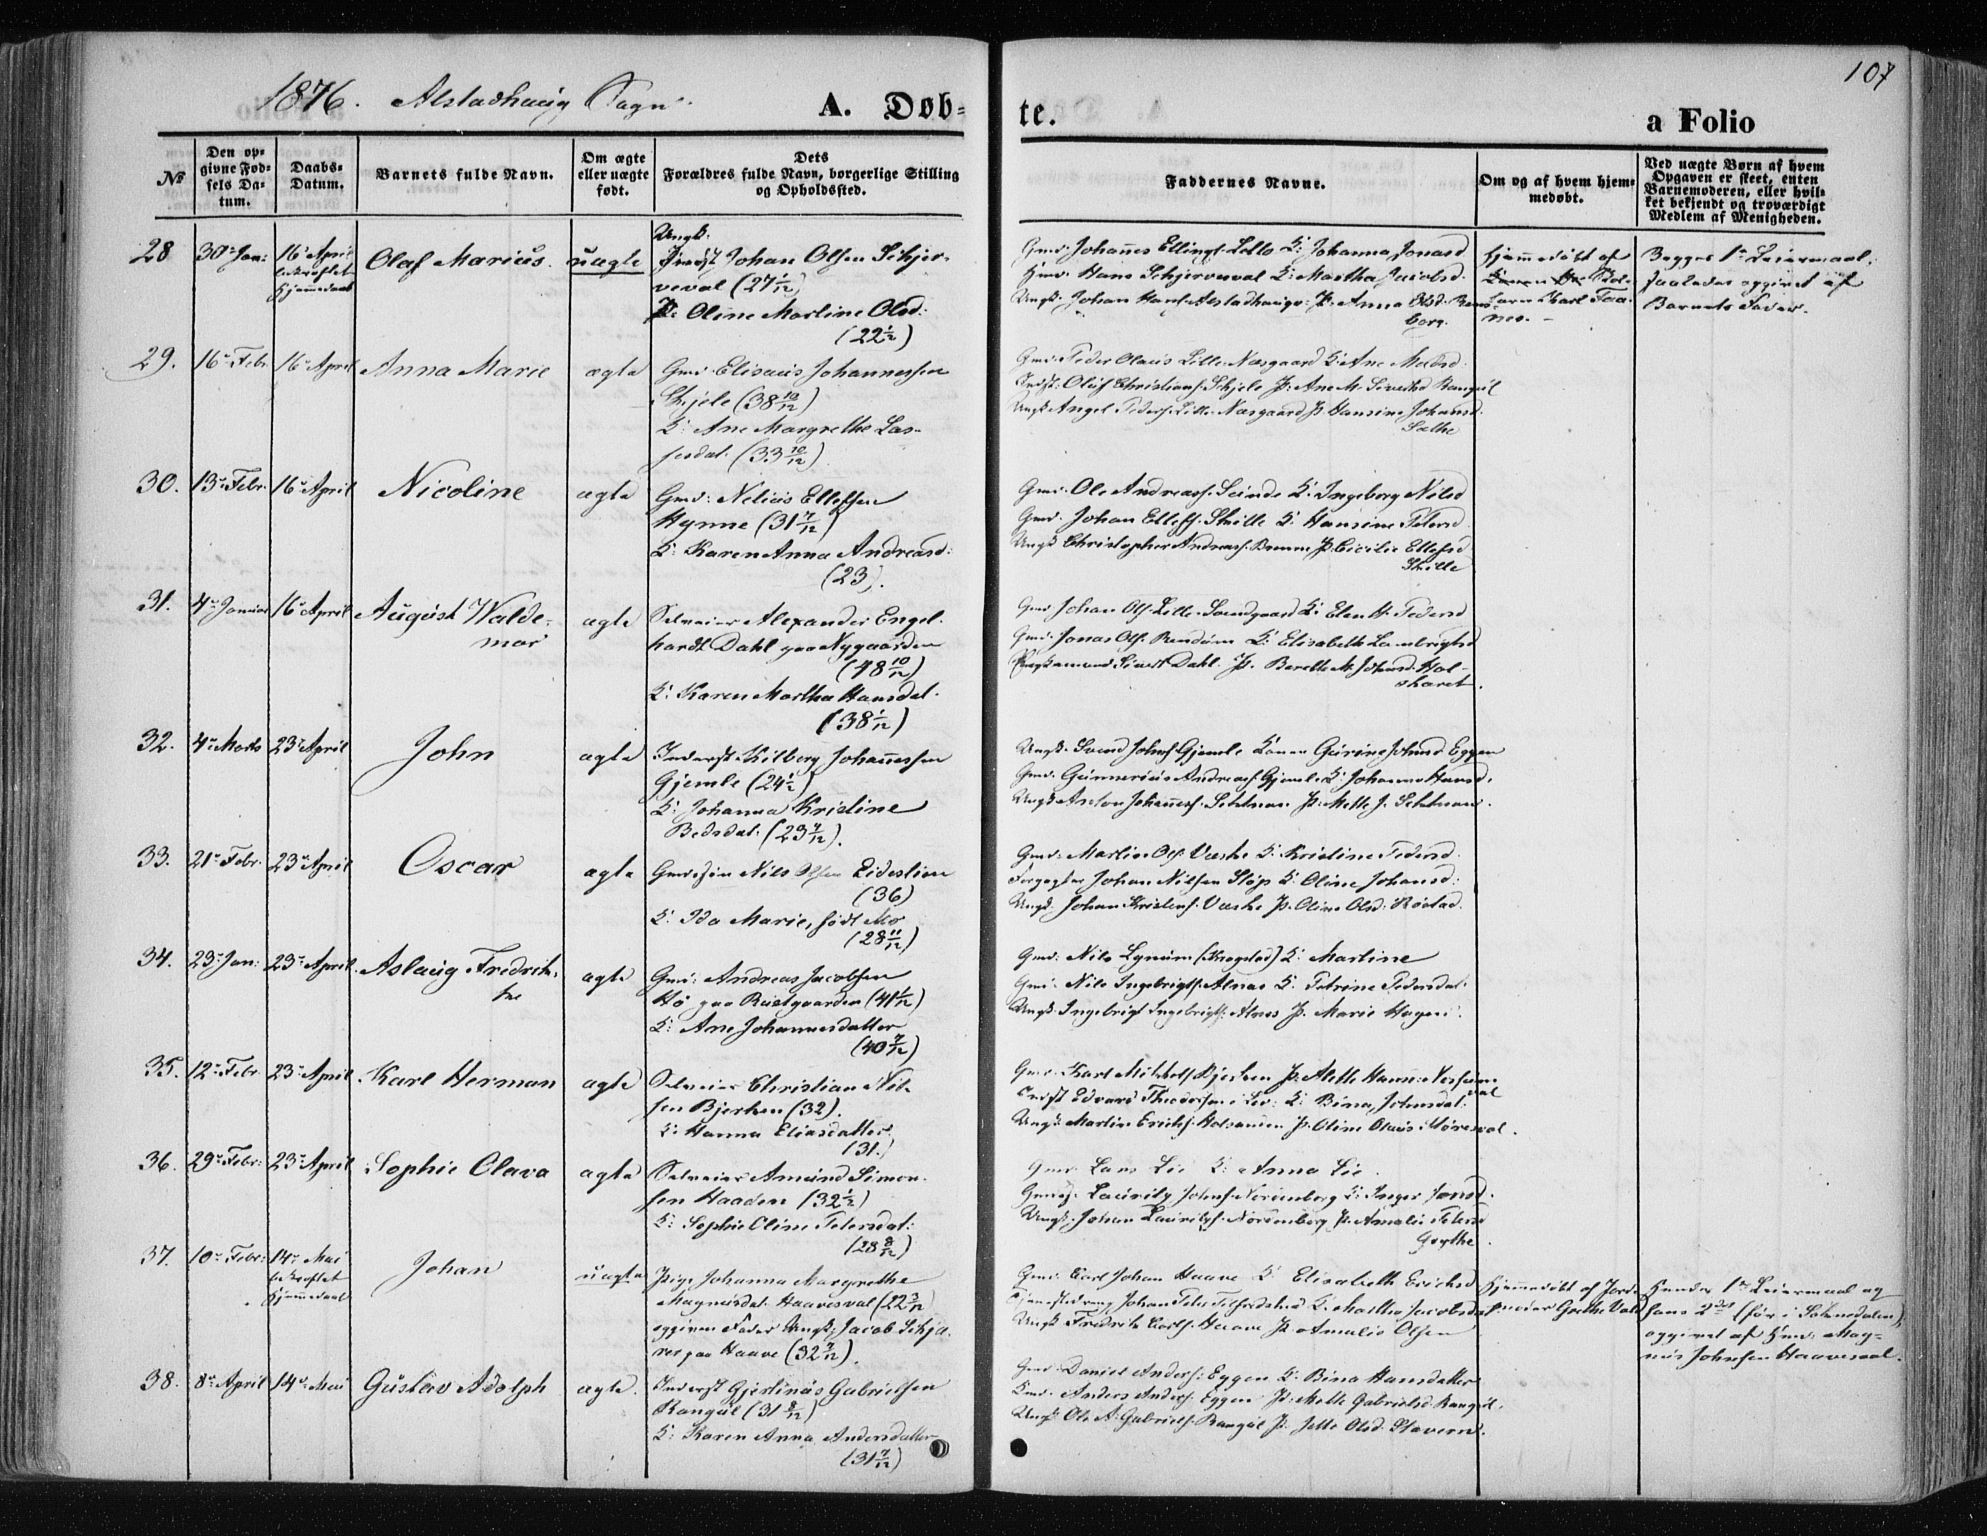 1876. Alstadhaug Sogn.
A. Døb-
te.
a Folio
107
№
Den op-
givne Fød-
sels Da-
tum.
Daabs-
Datum.
Barnets fulde Navn.
Om ægte
eller uægte
født.
Dets
Forældres fulde Navn, borgerlige Stilling
og Opholdssted.
Faddernes Navne.
Om og af hvem hjem-
medøbt.
Ved uægte Børn af hvem
Opgaven er skeet, enten
Barnemoderen, eller hvil-
ket bekjendt og troværdigt
Medlem af Menigheden.
28 30 Jan: 16 April
bekræftet
hjemmedaab
Olaf Marius. uægte
Ungk.
Indst Johan Olsen Schjer-
veval (27 1/12)
P: Oline Martine Olsd:
(22 1/2)
Gmd: Johannes Ellings. K: Johanna Jonasd
Gmd: Hans Schjerveval K: Martha Jacobsd.
Ungk. Johan Hans. Alstadhaug P: Anna Olsd.
borg.
hjemmedøbt af
Karl Faa-
nes.
Begges 1ste Leiermaal,
saaledes opgivet af
Barnets Fader.
29. 16 Febr 16 April Anna Marie ægte
Gmd Elisæus Johannessen
Skjele (38 10/12)
K: Ane Margrethe Las-
sesdat. (33 10/12)
Gmd: Peder Olaus Lille-Næsgaard K: Ane
Indst: Oluf Christians. Skjele P: Ane M. Sivertsd Rangul
Ungk Angel Peders. Lille-Næsgaard P Hansine Johansd.
30. 13 Febr 16 April Nicoline ægte
Gmd: Nelius Ellefsen
Hynne (31 7/12)
K: Karen Anna Andreasd:
(23).
Gmd: Ole Andreass. K: Ingeborg Nilsd
Gmd. Johan Ellefs. K: Hansine Petersd
Ungk Christopher Andreass. P. Cicilie Ellefsd
31. 4 Januar 16 April August Walde-
mar ægte
Selveier Alexander Engel-
hardt Dahl paa Nygaarden
(48 10/12)
K: Karen Martha Hansdat.
(38 1/12)
Gmd Johan Ols. Lille-Sundgaard K: Elen H. Pedersd
Gmd: Jonas Ols. Rendum K: Elisabeth Lambrigtsd
Sivert Dahl. P. Berethe M. Johansd. Hol-
32. 4 Marts 23 April John ægte
Inderst Kilberg Johannessen
Gjemle (24 1/2)
K: Johanna Kristine
(23 7/12).
Ungk. Svend Johns. Gjemle Konen Gurine Johnsd Eggen
Gmd: Gunnerius Andreass. Gjemle K. Johanna Hansd.
Ungk Anton Johanness. P: Mette J.
33. 21 Febr. 23 April Oscar ægte
Gmdssøn Nils Olsen Eidestien
(36)
K: Ida Marie, født Mo
(28 11/12)
Gmd: Martin Ols. Væske K. Kristine Pedersd.
Forpagter Johan Nilsen K: Oline Johansd:
Ungk. Johan Kristens. Væske P. Oline Olsd. Røstad.
34. 23 Jan: 23 April Aslaug Fredrik-
ke ægte
Gmd: Andreas Jacobsen
Hø paa Rustgaarden (41 1/12)
K: Ane Johannesdatter
(40 7/12)
Gmd: Nils Lynum (Krogstad) K: Martine
Gmd: Nils Ingebrigts. Alnæs K: Petrine Pedersdat.
Ungk. Ingebrigt Ingebrigts. Alnæs P. Marie Hagen.
35. 12 Febr 23 April Karl Herman ægte
Selveier Christian Nil-
sen Bjerken (32).
K: Hanna Eliasdatter.
(31)
Gmd: Karl Bjerken P. Alette Hanna
Indst Edvard Theodorsen i K: Bina, Johnsdat:
Ungk: Martin Ericks. P. Oline Olaus.
36. 29 Febr: 23 April Sophie Olava ægte
Selveier Amund Simon-
sen Haaden (32 1/2)
K: Sophie Oline Petersdat:
(28 8/12)
Gmd Lars Lie K: Anna Lie.
Gmdsj. Lauritz Johns. Noremberg K: Inger Jonsd.
Ungk: Johan Lauritzs. Noremberg P. Amalie Petersd
37. 10 Febr: 14 Mai
bekræftet
hjemmedaab
Johan uægte
Pige Johanna Margrethe
Magnusdat. Haavesval (22 3/12)
opgiven Fader Ungk: Jacob Schja-
paa Haave (32 7/12).
Gmd. Carl Johan Haave K. Elisabeth Ericksd
Johan Peter K. Martha Jacobsdat
Ungk Fredrik Carls. Haave P. Amalie Olsen
Hjemmedøbt af Jorde-
moder Grethe Val
Hendes 1ste Leiermaal og
hans 2det (før i ),
opgivet af Gmd. Mag-
nus Johnsen Haavesval.
38. 8 April 14 Mai Gustav Adolph ægte.
Inderst Gjertinus Gabrielsen
Rangul (31 8/12)
K: Karen Anna Andersdatter
(31 7/12)
Gmd. Daniel Anders. Eggen K. Bina Hansdatter
Gmd: Anders Anders. Eggen P. Mette Gabrielsd Rangul.
Ungk Ole A. Gabriels. Rangul P: Jette Olsd. Stavern.